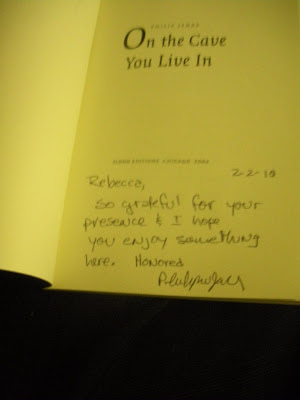 PHILIP JENKS
On the Cave
You Live In
FLOOD EDITIONS, CHICAGO, 2002
2-2-10
Rebecca,
So grateful for your
presence & I hope
you enjoy something
here. Honored